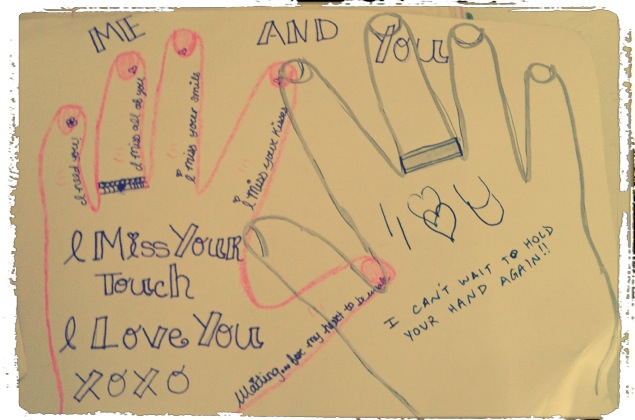 ME AND You
I need you!
I miss all of you
I miss your smile
I miss your kisses
I Miss Your
Touch
I Love You
XOXO
I U
I CAN'T WAIT TO HOLD
YOUR HAND AGAIN!!
Waiting... for my heart to be